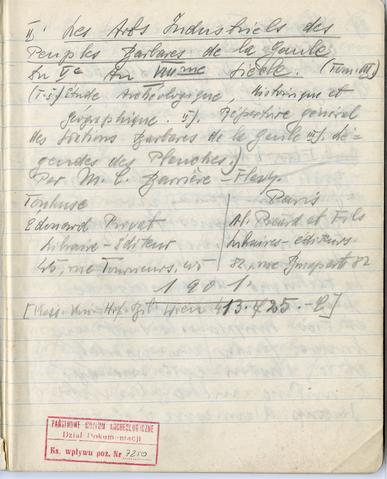 II. Les Arts Industriels des
Peuples Barbares de la Gaule
du Ve au VIIIme siècle. (Tom. III)
(T. I) Etude Archéologique, historique et
géographique. II). Répertoire général
des stations Barbares de la Gaule III). Lé-
gendes des Planches.
Par M. C. Barrière-Flavy
Toulouse
Edouard Privat
Libraire-Editeur
45, rue Tourneurs, 45
Paris
A. Picard et Fils
Libraires-éditeurs
82, rue Bonaparte 82
1901.
Hof. Bibl. Wien 413.425.-C.]
PAŃSTWOWE MUZEUM ARCHEOLOGICZNE
Dział Dokumentacji
Ks. wpływu poz. Nr 7250